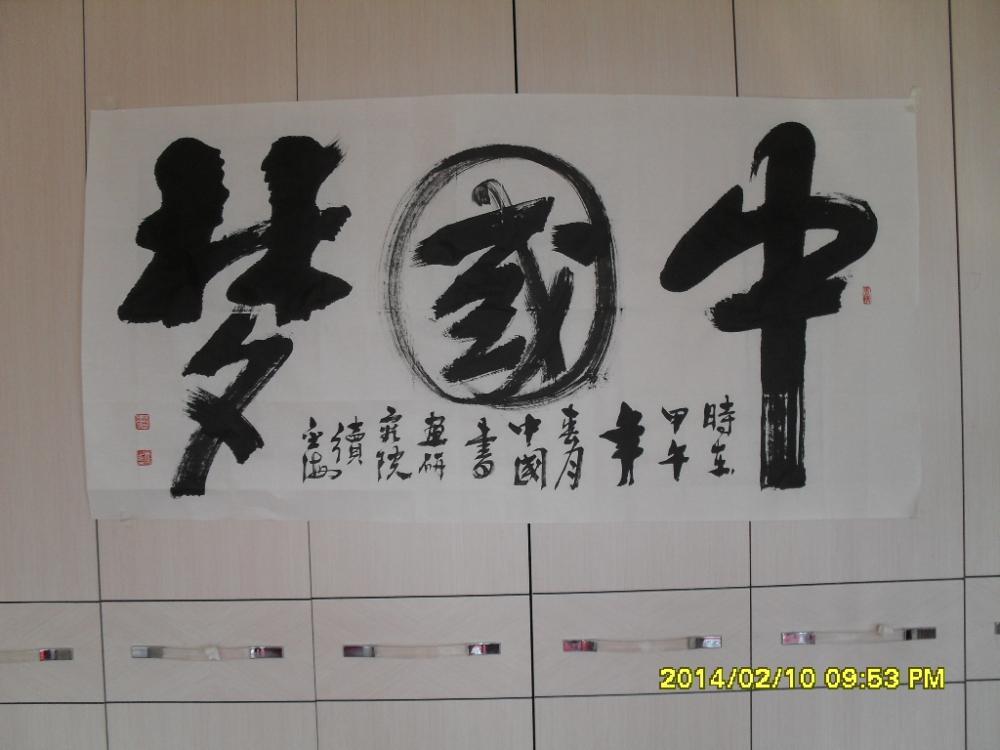 中國梦
時在
甲午
年
春月
中國
書
畫研
究院
續
海
2014/02/10 09:53 PM